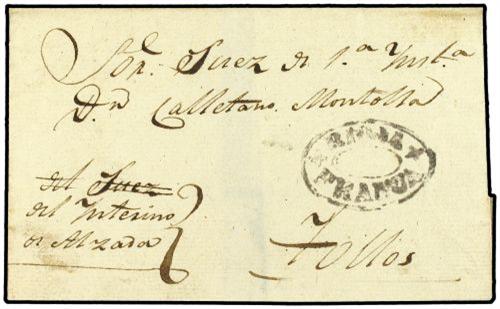 Sor. Juez de 1.a Inst.a
Dn Calletano Montolla
del Juez
del Interino
de Alzada
FRANCA
Follos